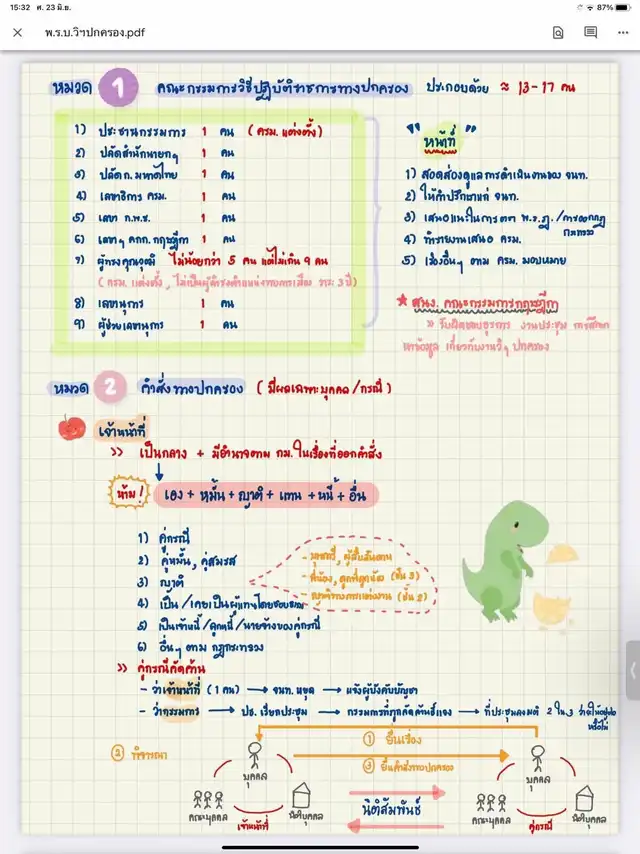 15:32 ศ. 23 มิ.ย.
87%
พ.ร.บ.วิฯปกครอง.pdf
หมวด 1 คณะกรรมการวิธีปฏิบัติราชการทางปกครอง ประกอบด้วย ≈ 13-17 คน
1) ประธานกรรมการ 1 คน (ครม. แต่งตั้ง)
2) ปลัดสำนักนายกฯ 1 คน
3) ปลัด ก. มหาดไทย 1 คน
4) เลขาธิการ ครม. 1 คน
5) เลขา ก.พ.ร. 1 คน
6) เลขาฯ คกก. กฤษฎีกา 1 คน
7) ผู้ทรงคุณวุฒิ ไม่น้อยกว่า 5 คน แต่ไม่เกิน 9 คน
(ครม. แต่งตั้ง, ไม่เป็นผู้ดำรงตำแหน่งทางการเมือง วาระ 3 ปี)
8) เลขานุการ 1 คน
9) ผู้ช่วยเลขานุการ 1 คน
"หน้าที่"
1) สอดส่องดูแลการดำเนินงานของ จนท.
2) ให้คำปรึกษาแก่ จนท.
3) เสนอแนะในการตรา พ.ร.ฎ. / การออกกฎกระทรวง
4) ทำรายงานเสนอ ครม.
5) เรื่องอื่นๆ ตาม ครม. มอบหมาย
★ สนง. คณะกรรมการกฤษฎีกา
» รับผิดชอบธุรการ งานประชุม การศึกษา
หาข้อมูล เกี่ยวกับงานวิฯ ปกครอง
หมวด 2 คำสั่งทางปกครอง (มีผลเฉพาะบุคคล/กรณี)
เจ้าหน้าที่
>> เป็นกลาง + มีอำนาจตาม กม. ในเรื่องที่ออกคำสั่ง
ห้าม! เอง + หมั้น + ญาติ + แทน + หนี้ + อื่น
1) คู่กรณี
2) คู่หมั้น, คู่สมรส
3) ญาติ
- บุพการี, ผู้สืบสันดาน
- พี่น้อง, ลูกพี่ลูกน้อง (ชั้น 3)
- ญาติทางการแต่งงาน (ชั้น 2)
4) เป็น/เคยเป็นผู้แทนโดยชอบธรรม
5) เป็นเจ้าหนี้/ลูกหนี้/นายจ้างของคู่กรณี
6) อื่นๆ ตาม กฎกระทรวง
>> คู่กรณีคัดค้าน
- ว่าเจ้าหน้าที่ (1 คน) → จนท. หยุด → แจ้งผู้บังคับบัญชา
- ว่ากรรมการ → ปธ. เรียกประชุม → กรรมการที่ถูกคัดค้านชี้แจง → ที่ประชุมลงมติ 2 ใน 3 ว่าจะให้อยู่ต่อหรือไม่
① ยื่นเรื่อง
② พิจารณา
③ ยื่นคำสั่งทางปกครอง
บุคคล
คณะบุคคล
นิติบุคคล
เจ้าหน้าที่
นิติสัมพันธ์
บุคคล
คณะบุคคล
นิติบุคคล
คู่กรณี